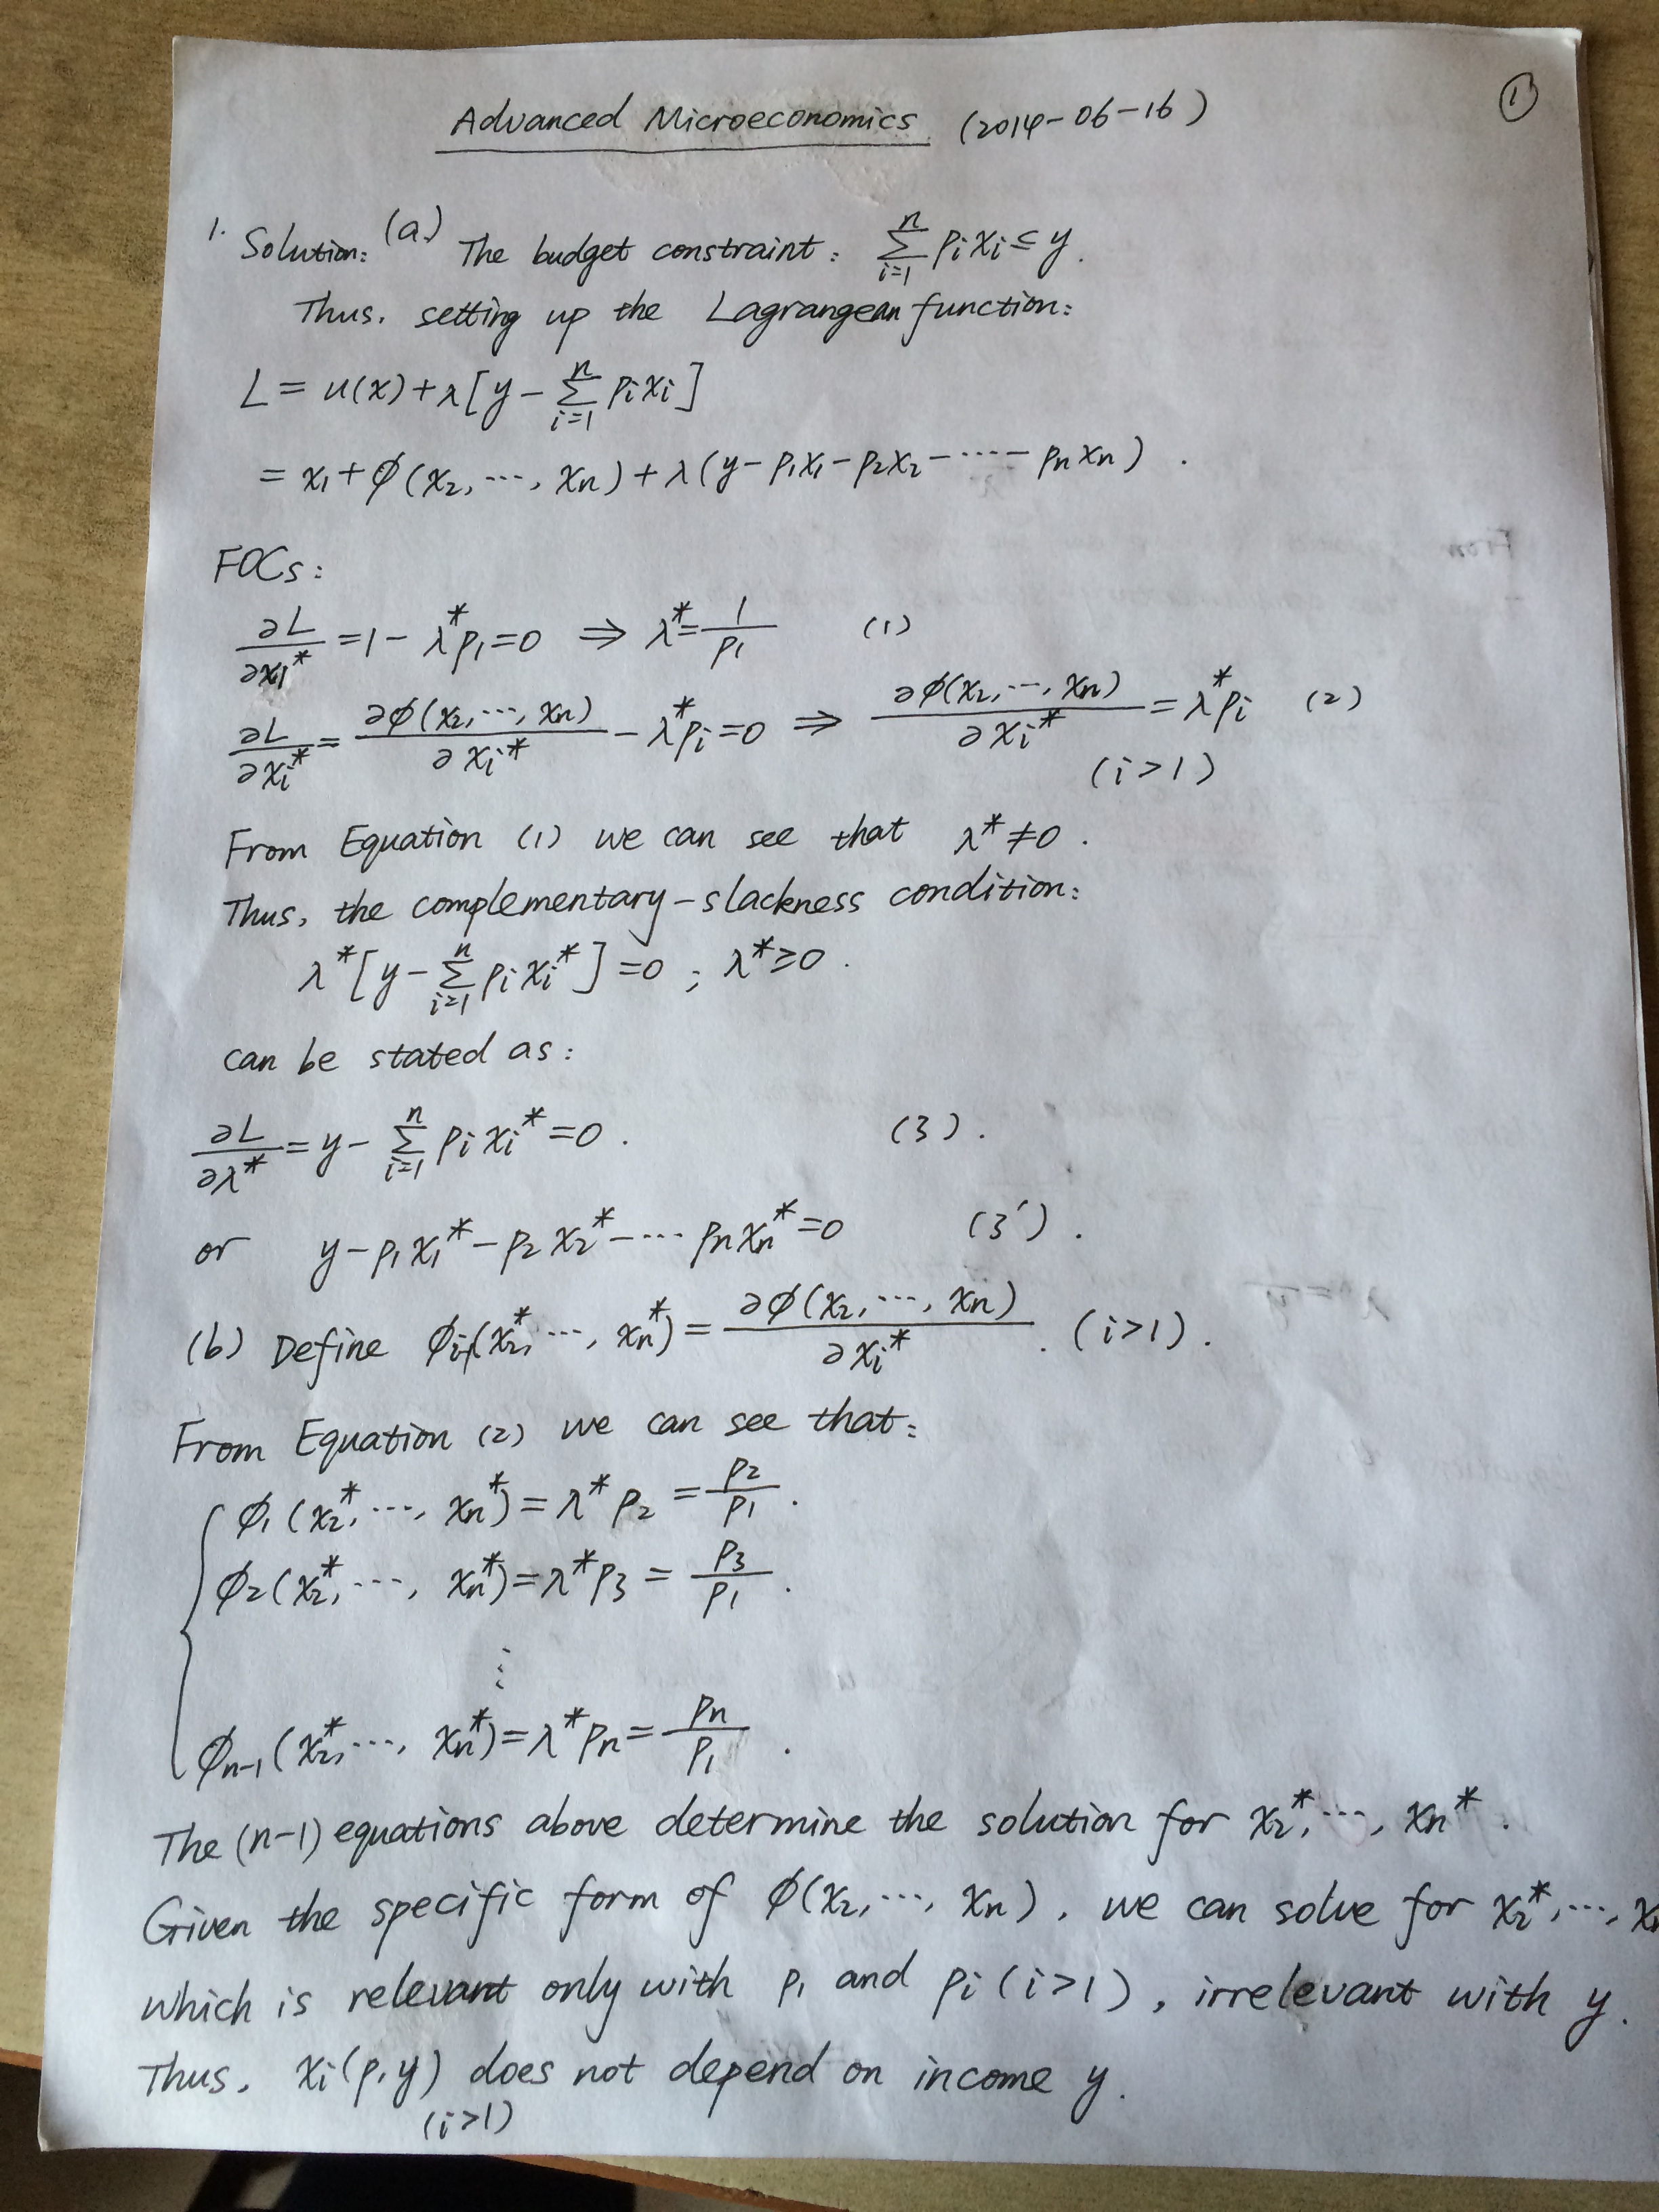 ①
Advanced Microeconomics (2014-06-16)
1. Solution: (a) The budget constraint: \sum_{i=1}^{n} p_i x_i ≤ y.
Thus, setting up the Lagrangean function:
L = u(x) + λ[y - \sum_{i=1}^{n} p_i x_i]
= x_1 + φ(x_2, ..., x_n) + λ(y - p_1x_1 - p_2x_2 - ... - p_nx_n).
FOCs:
\frac{∂L}{∂x_1^*} = 1 - λ^*p_1 = 0 ⇒ λ^* = \frac{1}{p_1} (1)
\frac{∂L}{∂x_i^*} = \frac{∂φ(x_2, ..., x_n)}{∂x_i^*} - λ^*p_i = 0 ⇒ \frac{∂φ(x_2, ..., x_n)}{∂x_i^*} = λ^*p_i (2)
(i>1)
From Equation (1) we can see that λ^* ≠ 0.
Thus, the complementary-slackness condition:
λ^*[y - \sum_{i=1}^{n} p_i x_i^*] = 0; λ^* ≥ 0.
can be stated as:
\frac{∂L}{∂λ^*} = y - \sum_{i=1}^{n} p_i x_i^* = 0. (3).
or y - p_1x_1^* - p_2x_2^* - ... p_nx_n^* = 0 (3').
(b) Define φ_{i-1}(x_2^*, ..., x_n^*) = \frac{∂φ(x_2, ..., x_n)}{∂x_i^*}. (i>1).
From Equation (2) we can see that:
φ_1(x_2^*, ..., x_n^*) = λ^*p_2 = \frac{p_2}{p_1}.
φ_2(x_2^*, ..., x_n^*) = λ^*p_3 = \frac{p_3}{p_1}.
⋮
φ_{n-1}(x_2^*, ..., x_n^*) = λ^*p_n = \frac{p_n}{p_1}.
The (n-1) equations above determine the solution for x_2^*, ..., x_n^*.
Given the specific form of φ(x_2, ..., x_n), we can solve for x_2^*, ..., x_n
which is relevant only with p_1 and p_i (i>1), irrelevant with y.
Thus, x_i(p,y) does not depend on income y.
(i>1)